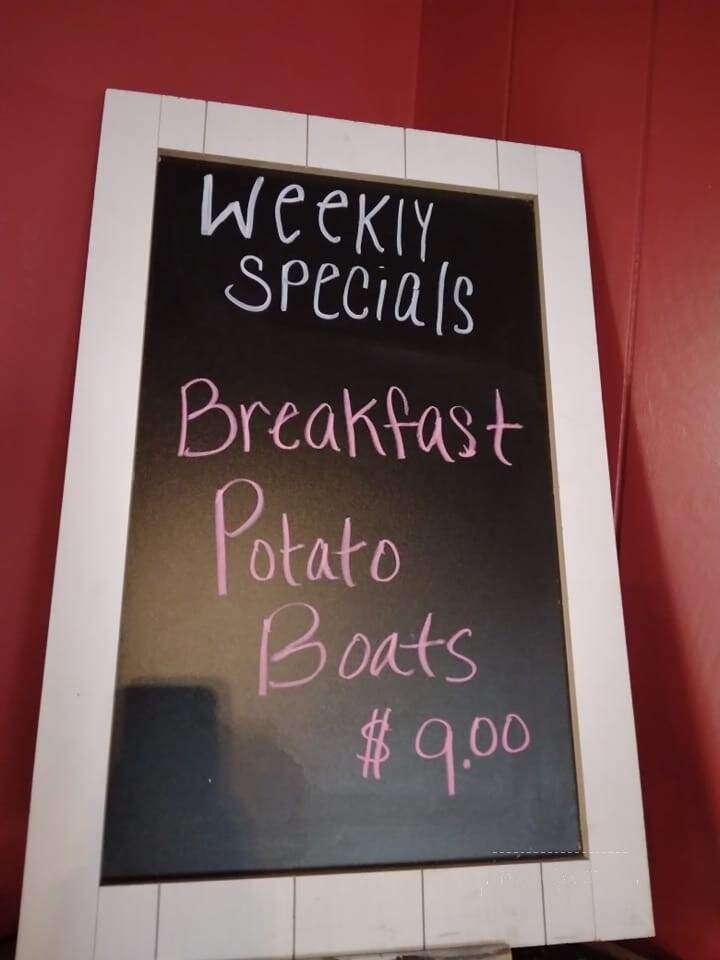 WeeKlY
SPecials
Breakfast
Potato
Boats
$ 9.00